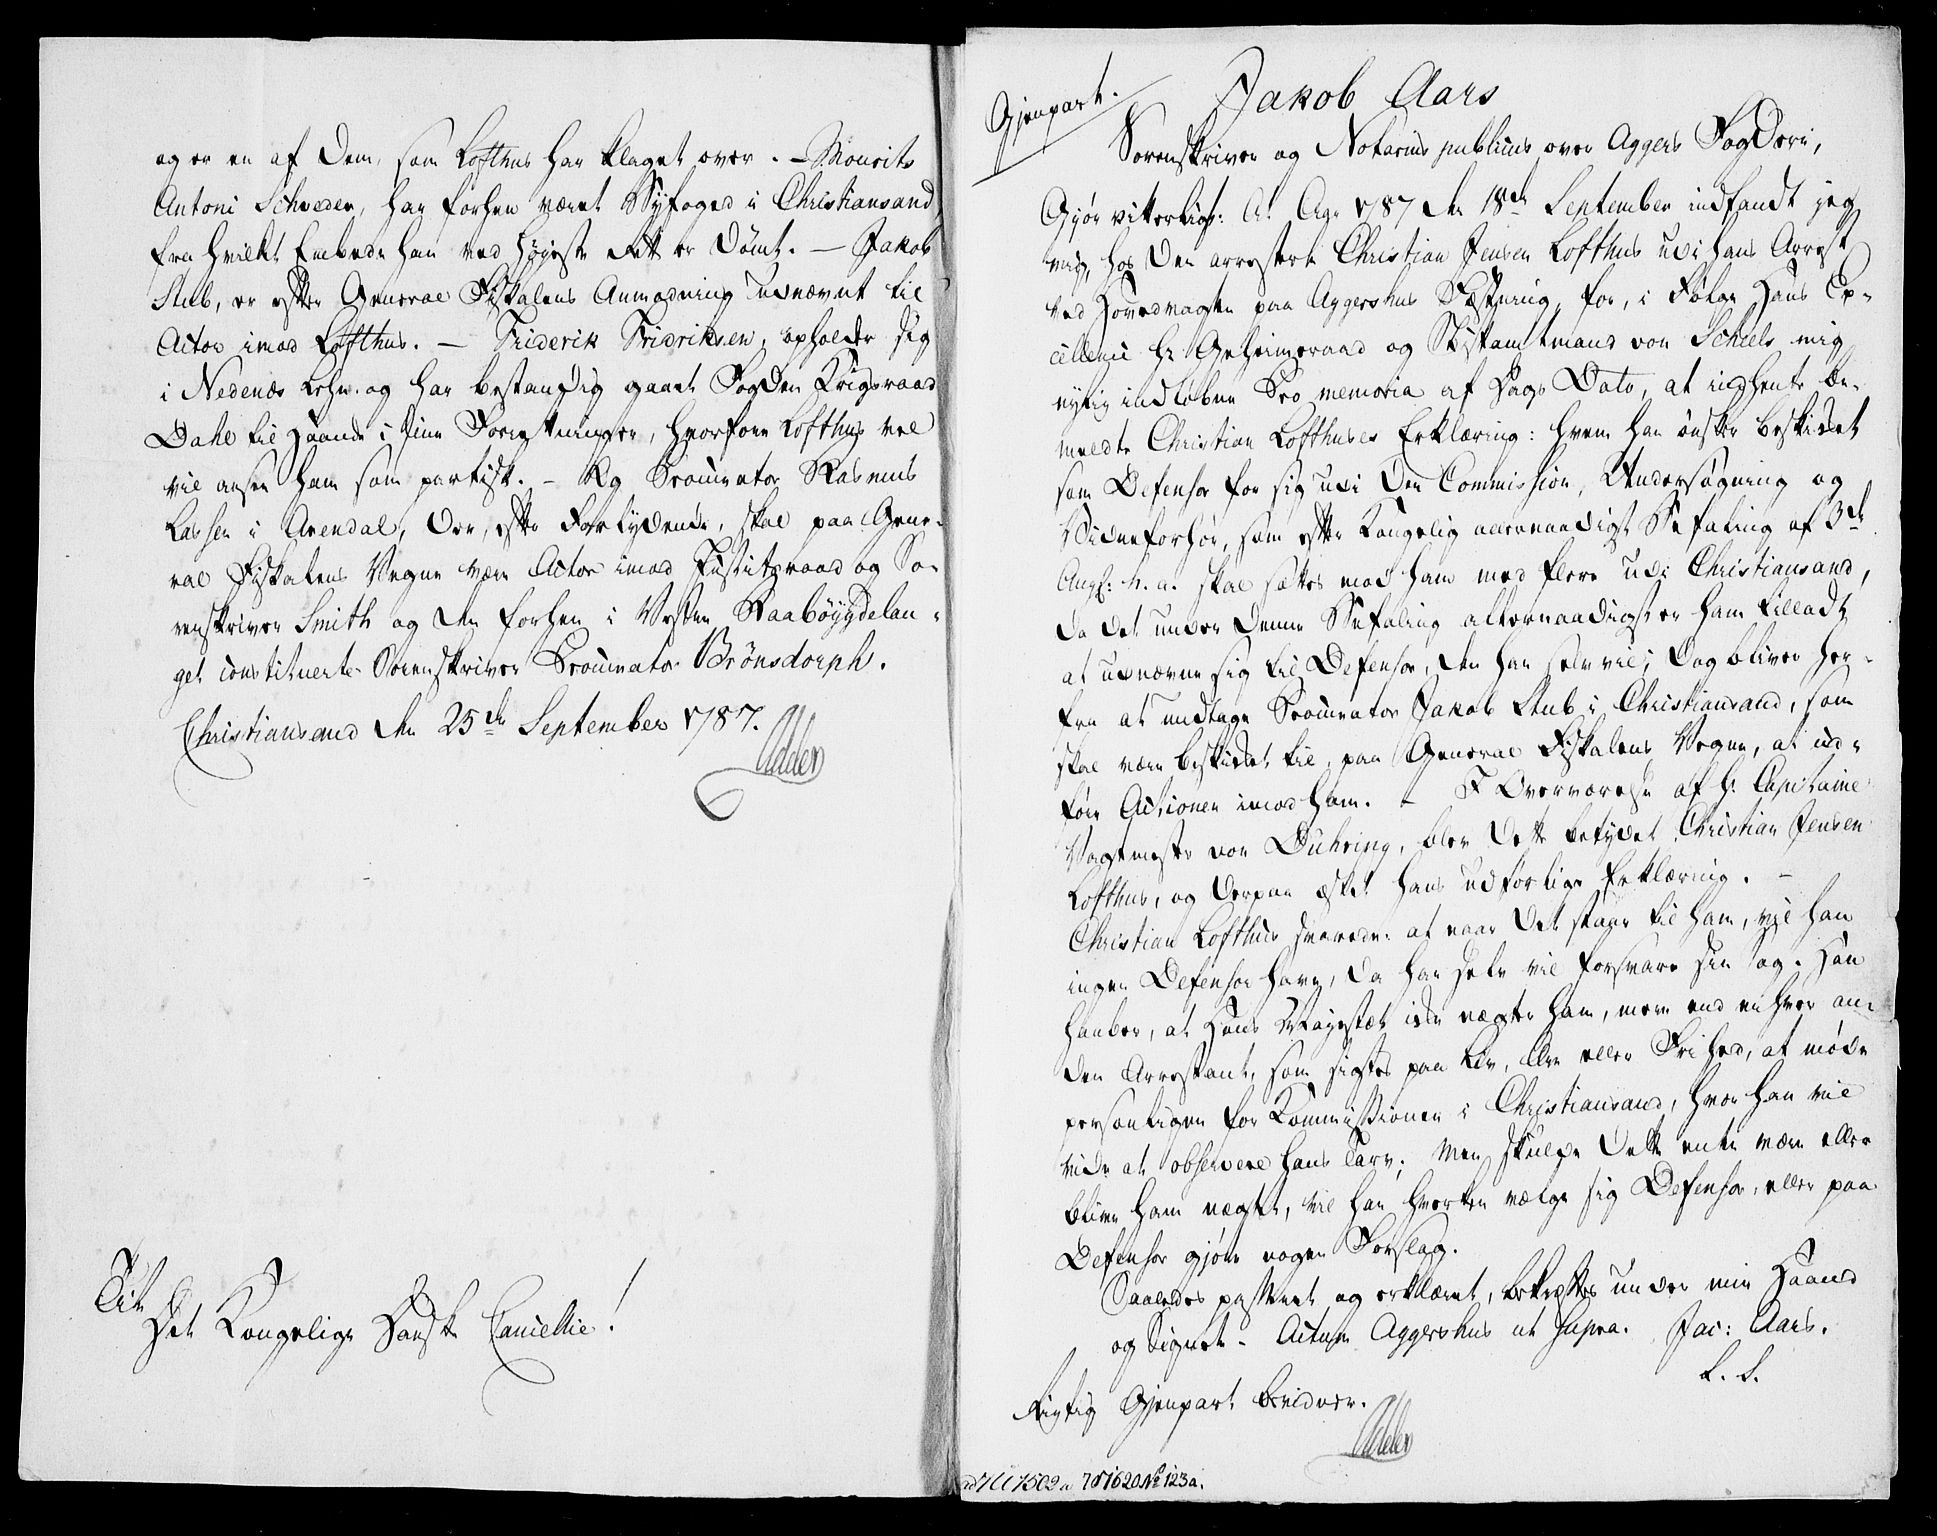 og er en af dem, som Lofthus har klaget over. – Mourits
Antoni Schveder, har forhen været Byfoged i Christiansand
fra hvilket Embede han ved Høyeste Rett er dømt. – Jakob
Stub, er efter General Fiskalens Anmodning udnævnt til
Actor imod Lofthus. – Friderik Fridriksen, opholder sig
i Nedenæs Lehn og har bestandig gaaet Fogden Krigsraad
Dahl til Haande i sine Forretninger, hvorfore Lofthus vel
vil ansee ham som partisk. – Og Procurator Rasmus
Lassen i Arendal, der, efter Forlydende, skal paa Gene-
ral Fiskalens Vegne være Actor imod Justitsraad og So-
renskriver Smith og den forhen i Vestre Raabøygdelau-
get constituerte Sorenskriver Procurator Brønsdorph.
Christiansand den 25de September 1787.
Adeler
Til
Det Kongelige Danske Cancellie!
Gjenpart.
Jakob Aars
Sorenskriver og Notarius publicus over Aggers Fogderi,
Gjør vitterligt: At Ao 1787 den 18de September indfandt jeg
mig, hos den arresterte Christian Jensen Lofthus udi hans Arrest
ved Hovedvagten paa Aggershus Fæstning, for, i Følge Hans Ex-
cellence Hr. Geheimeraad og Stiftamtmand von Scheels mig
nylig indløbne Pro memoria af Dags Dato, at indhente be-
meldte Christian Lofthuses Erklæring: hvem han ønsker beskikket
som Defensor for sig udi den Commission, Undersøgning og
Vidneforhør, som efter Kongelig allernaadigst Befaling af 3de
Augs: h. a. skal sættes mod ham med flere udi Christiansand,
da det under denne Befaling allernaadigst er ham tilladt
at udnævne sig til Defensor, den han selv vil; dog bliver her-
fra at undtage Procurator Jakob Stub i Christiansand, som
skal være beskikket til, paa General Fiskalens Vegne, at ud-
føre Actionen imod ham. – I Overværelse af Hr. Capitaine
Vagtmester von Duhring, blev dette betydet Christian Jensen
Lofthus, og derpaa æsket hans udførlige Erklæring. –
Christian Lofthus svarede: at naar det staar til ham, vil han
ingen Defensor have, da han selv vil forsvare sin Sag. Han
haaber, at Hans Majestæt ikke nægter ham, mere end en hver an-
den Arrestant, som sigtes paa Liv, Ære eller Frihed, at møde
personligen for Kommissionen i Christiansand, hvor han vil
vide at observere hans Tarv; Men skulde dette enten være eller
blive ham nægtet, vil han hverken vælge sig Defensor, eller paa
Defensor gjøre nogen Forslag.
Saaledes passeret og erklæret, bekræftes under min Haand
og Signet – Actum Aggershus ut supra. Jac: Aars.
L. S.
Rigtig Gjenpart bevidner.
Adeler